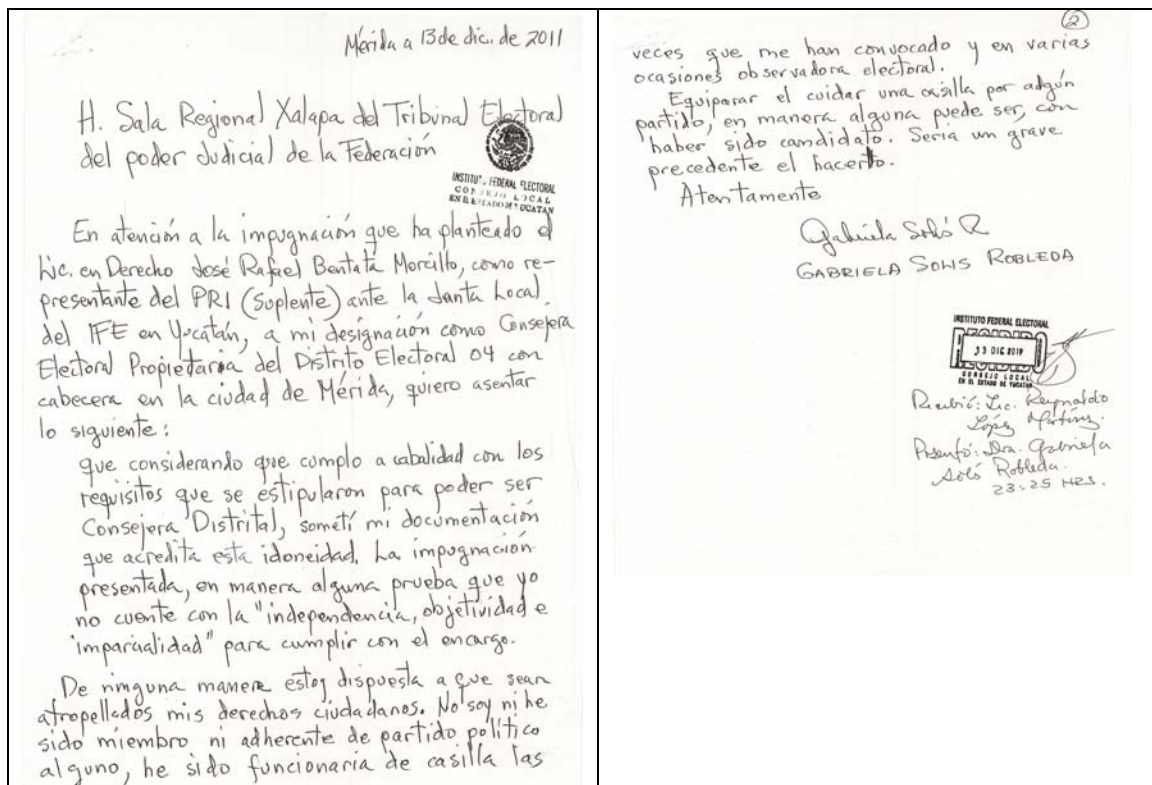 Mérida a 13 de dic. de 2011
H. Sala Regional Xalapa del Tribunal Electoral
del poder Judicial de la Federación
INSTITUTO FEDERAL ELECTORAL
CONSEJO LOCAL
EN EL ESTADO DE YUCATAN
En atención a la impugnación que ha planteado el
Lic. en Derecho José Rafael Bentata Morcillo, como re-
presentante del PRI (Suplente) ante la Junta Local
del IFE en Yucatán, a mi designación como Consejera
Electoral Propietaria del Distrito Electoral 04 con
cabecera en la ciudad de Mérida, quiero asentar
lo siguiente:
que considerando que cumplo a cabalidad con los
requisitos que se estipularon para poder ser
Consejera Distrital, sometí mi documentación
que acredita esta idoneidad. La impugnación
presentada, en manera alguna prueba que yo
no cuente con la "independencia, objetividad e
imparcialidad" para cumplir con el encargo.
De ninguna manera estoy dispuesta a que sean
atropellados mis derechos ciudadanos. No soy ni he
sido miembro ni adherente de partido político
alguno, he sido funcionaria de casilla las
2
veces que me han convocado y en varias
ocasiones observadora electoral.
Equiparar el cuidar una casilla por algún
partido, en manera alguna puede ser, con
haber sido candidato. Sería un grave
precedente el hacerlo.
Atentamente
Gabriela Solís R
GABRIELA SOLIS ROBLEDA
INSTITUTO FEDERAL ELECTORAL
DIC
CONSEJO LOCAL
EN EL ESTADO DE YUCATAN
Recibió: Lic. Reynaldo
López Martínez.
Presentó: Dra. Gabriela
Solís Robleda.
23:25 HRS.